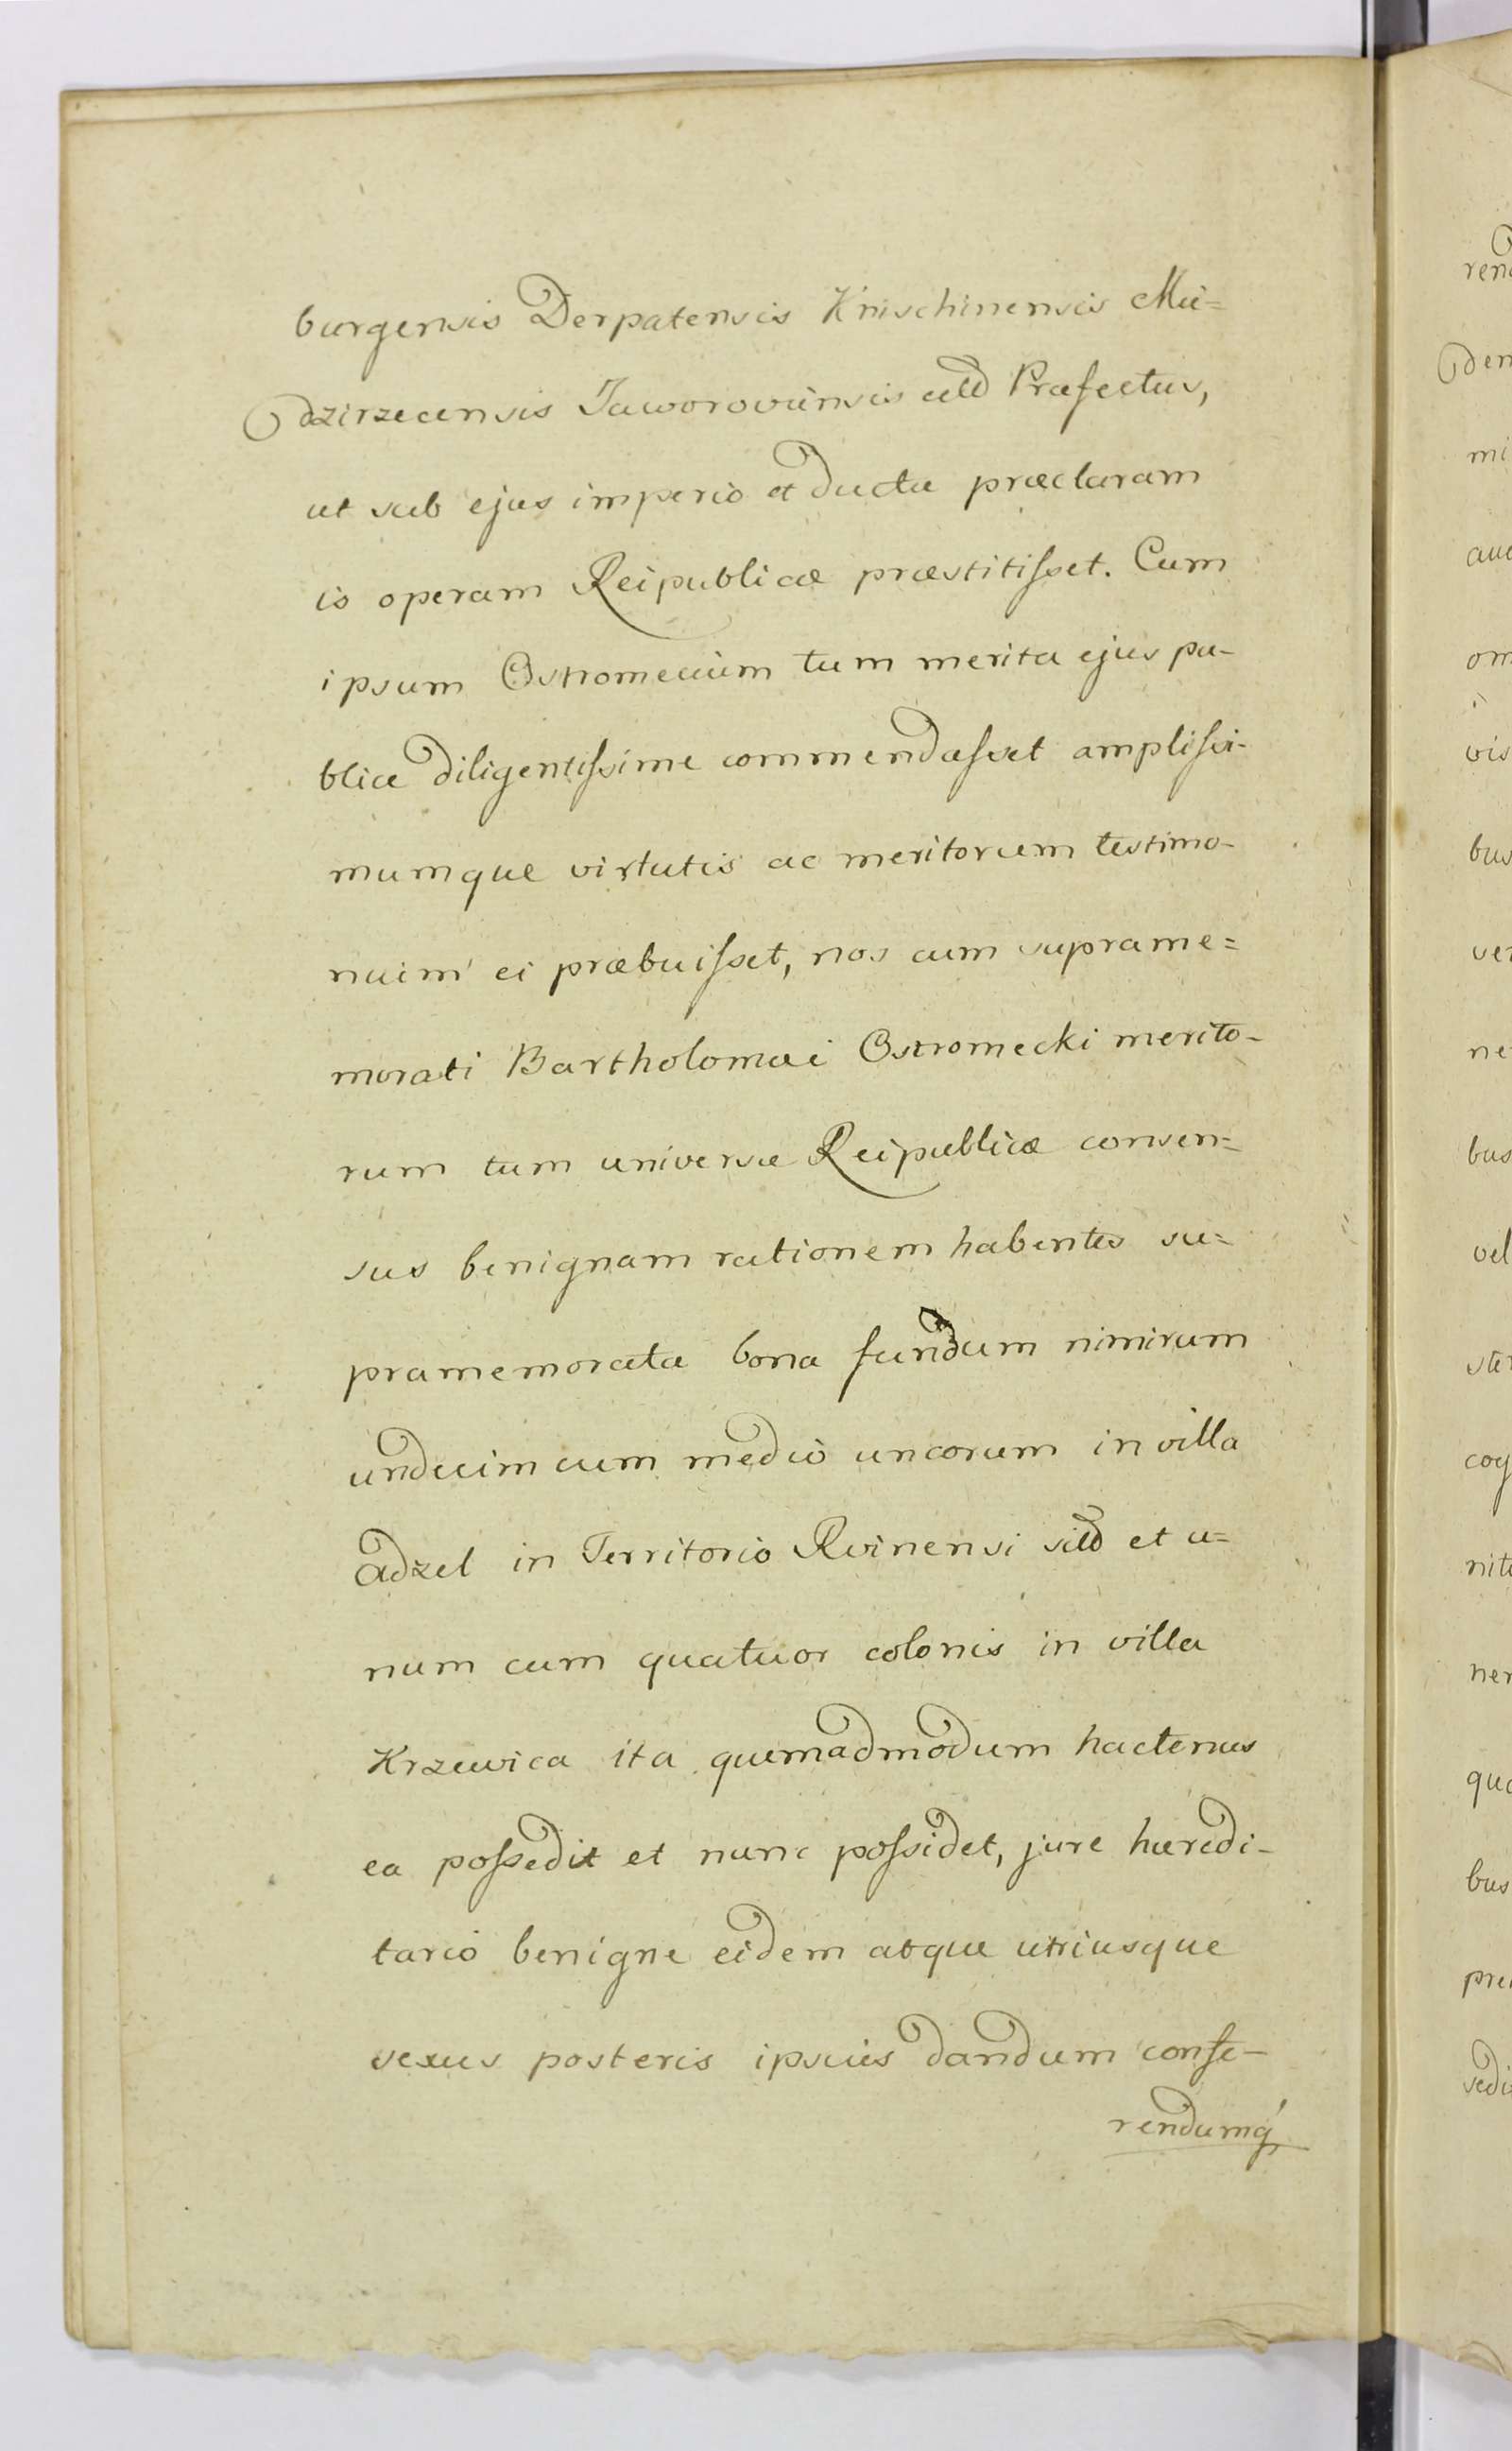 burgensis Derpatensis Knischinensis Mie=
dzirzecensis Jaworoviensis ctld Præfectus,
ut sub ejus imperio et ductu præclaram
is operam Reipublicæ præstitisset. Cum
ipsum Ostromecium tum merita ejus pu-
blice diligentissime commendasset amplissi-
mumque virtutis ac meritorum testimo-
nium ei præbuisset, nos cum suprame=
morati Bartholomæi Ostromecki merito-
rum tum universæ Reipublicæ consen=
sus benignam rationem habentes su=
pramemorata bona fundum nimirum
undecim cum medio uncorum in villa
Adzel in Territorio Rvinensi sild et u=
num cum quatuor colonis in villa
Krzewica ita quemadmodum hactenus
ea possedit et nunc possidet, jure hæredi-
tario benigne eidem atque utriusque
sexus posteris ipsius dandum confe-
rendumq́
ren
den
mi
om
vis
bus
ver
ne
bus
vel
ster
cog
nite
ner
qua
bus
pre
sedi